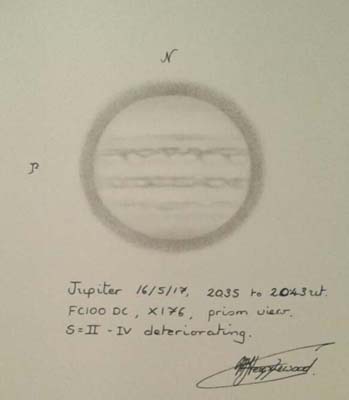 N
P
Jupiter 16/5/17, 2035 to 2043ut.
FC100 DC, X176, prism view.
S=II - IV deteriorating.